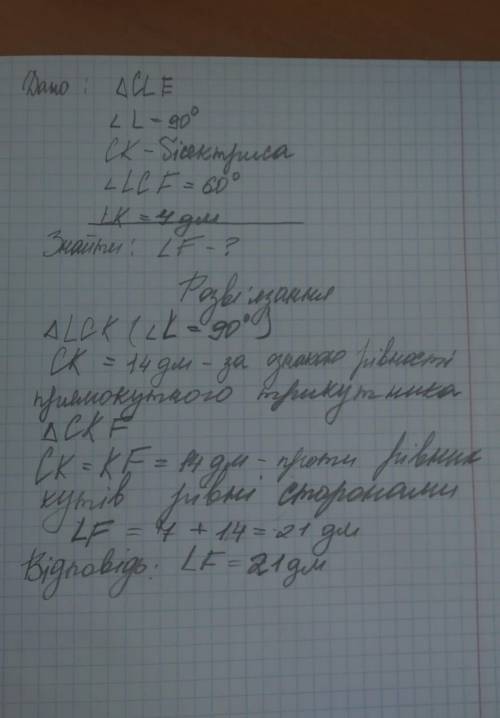 Дано: △CLF
∠L = 90°
CK - бісектриса
∠LCF = 60°
LK = 7 дм
Знайти: LF - ?
Розв'язання
△LCK (∠L = 90°)
CK = 14 дм - за ознакою рівності
прямокутного трикутника
△CKF
CK = KF = 14 дм - проти рівних
кутів рівні сторонами
LF = 7 + 14 = 21 дм
Відповідь: LF = 21 дм